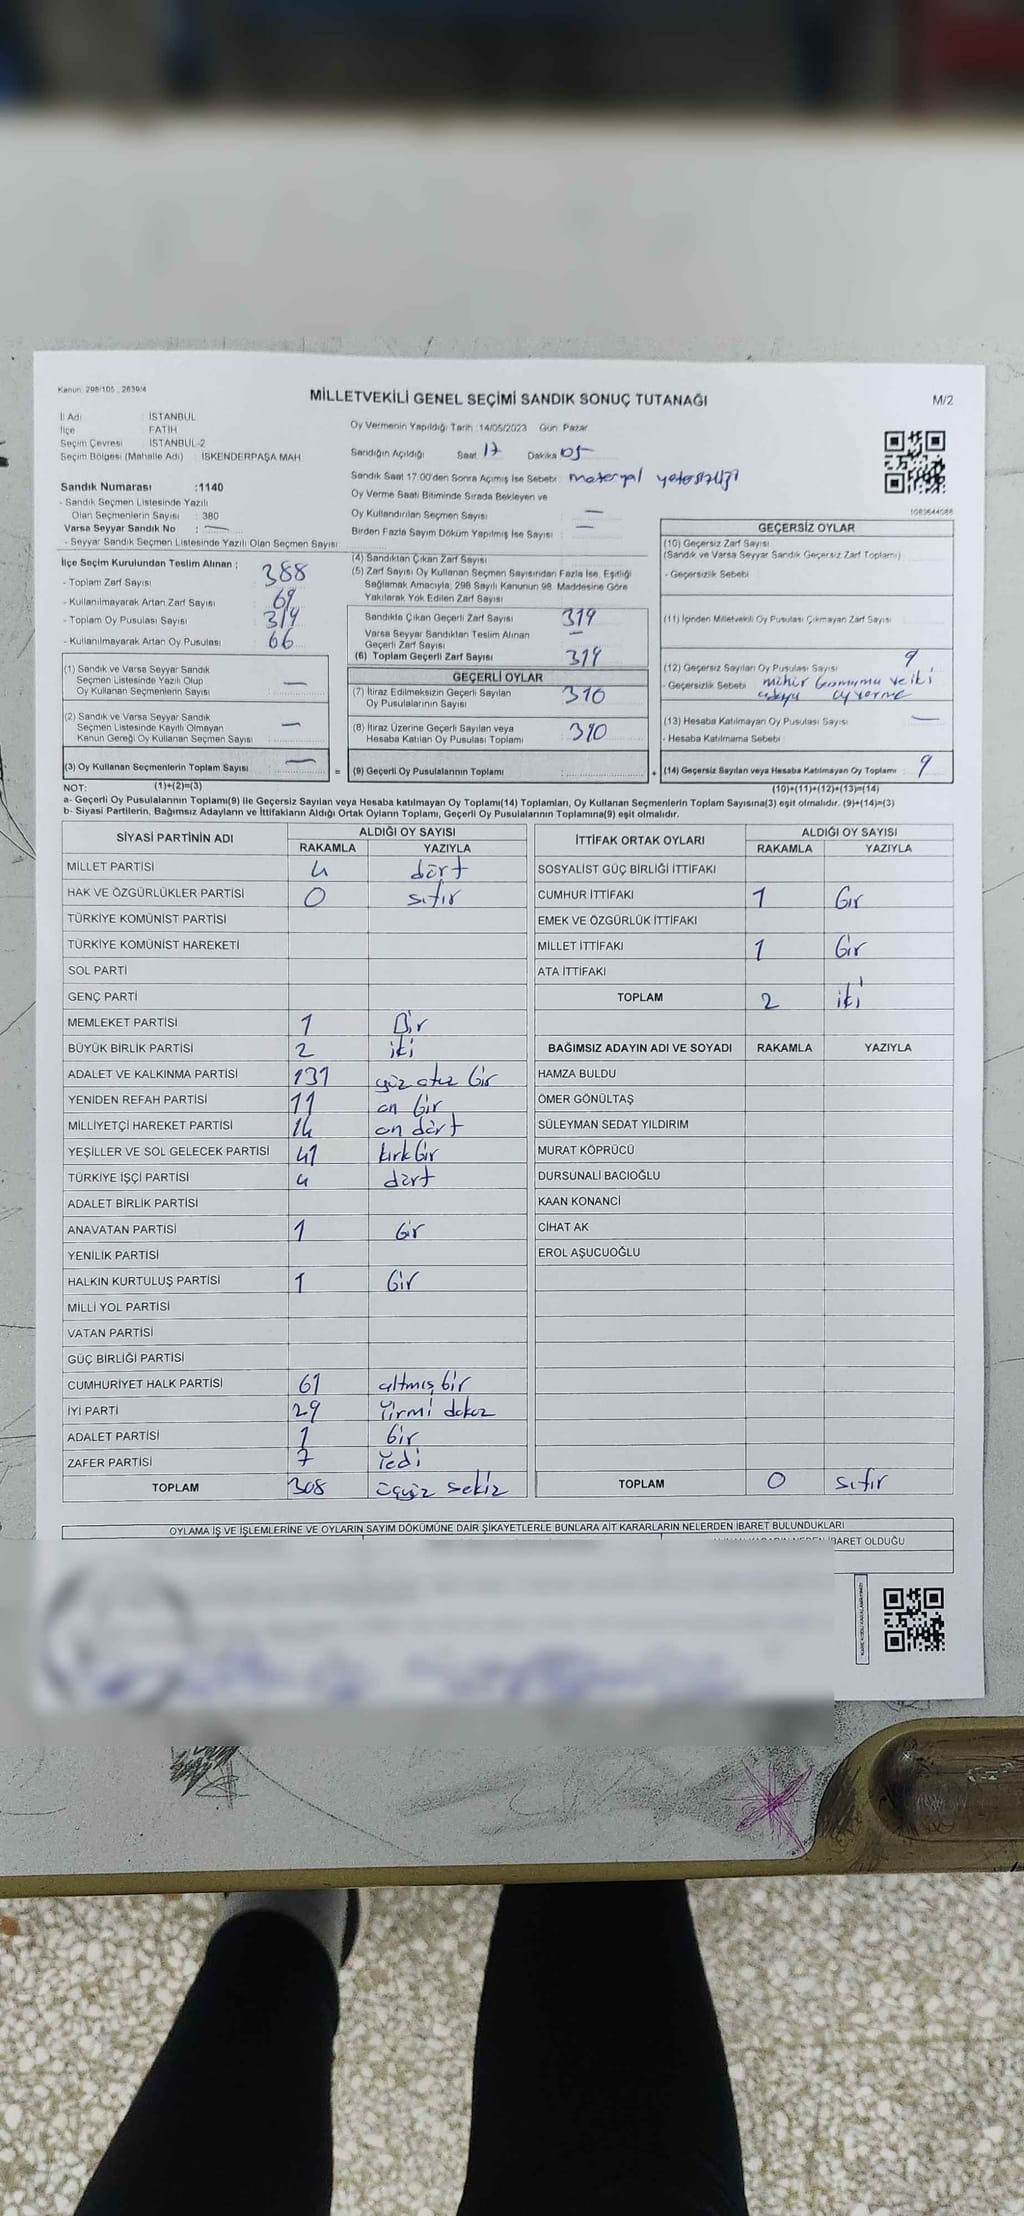 Kanun: 298/105 , 2839/4
MİLLETVEKİLİ GENEL SEÇİMİ SANDIK SONUÇ TUTANAĞI
M/2
İl Adı : İSTANBUL
İlçe : FATİH
Seçim Çevresi : İSTANBUL-2
Seçim Bölgesi (Mahalle Adı) : İSKENDERPAŞA MAH.
Oy Vermenin Yapıldığı Tarih :14/05/2023 Gün: Pazar
Sandığın Açıldığı Saat 17 Dakika 05
Sandık Saat 17:00'den Sonra Açımış İse Sebebi : materyal yetersizliği
Oy Verme Saati Bitiminde Sırada Bekleyen ve
Oy Kullandırılan Seçmen Sayısı : —
Birden Fazla Sayım Döküm Yapılmış İse Sayısı : —
Sandık Numarası :1140
- Sandık Seçmen Listesinde Yazılı
Olan Seçmenlerin Sayısı : 380
Varsa Seyyar Sandık No : —
- Seyyar Sandık Seçmen Listesinde Yazılı Olan Seçmen Sayısı:
İlçe Seçim Kurulundan Teslim Alınan ;
- Toplam Zarf Sayısı 388
- Kullanılmayarak Artan Zarf Sayısı 69
- Toplam Oy Pusulası Sayısı 319
- Kullanılmayarak Artan Oy Pusulası 66
(1) Sandık ve Varsa Seyyar Sandık
Seçmen Listesinde Yazılı Olup
Oy Kullanan Seçmenlerin Sayısı —
(2) Sandık ve Varsa Seyyar Sandık
Seçmen Listesinde Kayıtlı Olmayan
Kanun Gereği Oy Kullanan Seçmen Sayısı —
(3) Oy Kullanan Seçmenlerin Toplam Sayısı —
(1)+(2)=(3)
(4) Sandıktan Çıkan Zarf Sayısı
(5) Zarf Sayısı Oy Kullanan Seçmen Sayısından Fazla İse, Eşitliği
Sağlamak Amacıyla, 298 Sayılı Kanunun 98. Maddesine Göre
Yakılarak Yok Edilen Zarf Sayısı
Sandıkta Çıkan Geçerli Zarf Sayısı 319
Varsa Seyyar Sandıktan Teslim Alınan
Geçerli Zarf Sayısı —
(6) Toplam Geçerli Zarf Sayısı 319
GEÇERLİ OYLAR
(7) İtiraz Edilmeksizin Geçerli Sayılan
Oy Pusulalarının Sayısı 310
(8) İtiraz Üzerine Geçerli Sayılan veya
Hesaba Katılan Oy Pusulası Toplamı 310
= (9) Geçerli Oy Pusulalarının Toplamı
1083644088
GEÇERSİZ OYLAR
(10) Geçersiz Zarf Sayısı
(Sandık ve Varsa Seyyar Sandık Geçersiz Zarf Toplamı)
- Geçersizlik Sebebi
(11) İçinden Milletvekili Oy Pusulası Çıkmayan Zarf Sayısı
(12) Geçersiz Sayılan Oy Pusulası Sayısı 9
- Geçersizlik Sebebi mühür ve iki
oy verme
(13) Hesaba Katılmayan Oy Pusulası Sayısı —
- Hesaba Katılmama Sebebi
+ (14) Geçersiz Sayılan veya Hesaba Katılmayan Oy Toplamı 9
(10)+(11)+(12)+(13)=(14)
NOT:
a- Geçerli Oy Pusulalarının Toplamı(9) ile Geçersiz Sayılan veya Hesaba katılmayan Oy Toplamı(14) Toplamları, Oy Kullanan Seçmenlerin Toplam Sayısına(3) eşit olmalıdır. (9)+(14)=(3)
b- Siyasi Partilerin, Bağımsız Adayların ve İttifakların Aldığı Ortak Oyların Toplamı, Geçerli Oy Pusulalarının Toplamına(9) eşit olmalıdır.
SİYASİ PARTİNİN ADI ALDIĞI OY SAYISI
RAKAMLA YAZIYLA
MİLLET PARTİSİ 4 dört
HAK VE ÖZGÜRLÜKLER PARTİSİ 0 sıfır
TÜRKİYE KOMÜNİST PARTİSİ
TÜRKİYE KOMÜNİST HAREKETİ
SOL PARTİ
GENÇ PARTİ
MEMLEKET PARTİSİ 1 Bir
BÜYÜK BİRLİK PARTİSİ 2 iki
ADALET VE KALKINMA PARTİSİ 131 yüz otuz bir
YENİDEN REFAH PARTİSİ 11 on bir
MİLLİYETÇİ HAREKET PARTİSİ 14 on dört
YEŞİLLER VE SOL GELECEK PARTİSİ 41 kırk bir
TÜRKİYE İŞÇİ PARTİSİ 4 dört
ADALET BİRLİK PARTİSİ
ANAVATAN PARTİSİ 1 bir
YENİLİK PARTİSİ
HALKIN KURTULUŞ PARTİSİ 1 bir
MİLLİ YOL PARTİSİ
VATAN PARTİSİ
GÜÇ BİRLİĞİ PARTİSİ
CUMHURİYET HALK PARTİSİ 61 altmış bir
İYİ PARTİ 29 Yirmi dokuz
ADALET PARTİSİ 1 bir
ZAFER PARTİSİ 7 Yedi
TOPLAM 308 üçyüz sekiz
İTTİFAK ORTAK OYLARI ALDIĞI OY SAYISI
RAKAMLA YAZIYLA
SOSYALİST GÜÇ BİRLİĞİ İTTİFAKI
CUMHUR İTTİFAKI 1 bir
EMEK VE ÖZGÜRLÜK İTTİFAKI
MİLLET İTTİFAKI 1 bir
ATA İTTİFAKI
TOPLAM 2 iki
BAĞIMSIZ ADAYIN ADI VE SOYADI RAKAMLA YAZIYLA
HAMZA BULDU
ÖMER GÖNÜLTAŞ
SÜLEYMAN SEDAT YILDIRIM
MURAT KÖPRÜCÜ
DURSUNALİ BACIOĞLU
KAAN KONANCİ
CİHAT AK
EROL AŞUCUOĞLU
TOPLAM 0 sıfır
OYLAMA İŞ VE İŞLEMLERİNE VE OYLARIN SAYIM DÖKÜMÜNE DAİR ŞİKAYETLERLE BUNLARA AİT KARARLARIN NELERDEN İBARET BULUNDUKLARI
İBARET OLDUĞU